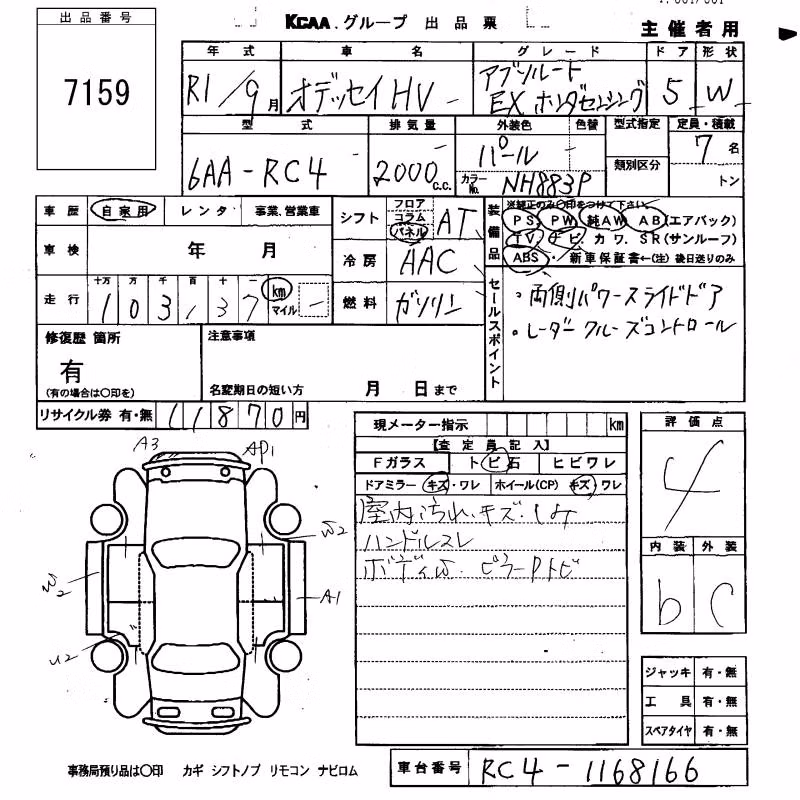 出品番号
7159
KCAA.グループ 出品票
主催者用
年式 車名 グレード ドア 形状
R1/9月 オデッセイHV アブソルート EX ホンダセンシング 5 W
型式 排気量 外装色 色替 型式指定 定員・積載
6AA-RC4 2000c.c. パール 7名
カラーNo. NH883P 類別区分 トン
車歴 自家用 レンタ 事業、営業車
シフト フロア コラム パネル AT
装備品 ※純正のみ〇印をつけて下さい。
PS、PW、純AW、AB(エアバック)
TV、ナビ、カワ、SR(サンルーフ)
ABS・新車保証書←(注)後日送りのみ
車検 年 月
冷房 AAC
走行 十万 万 千 百 十 一 km マイル
103,137
燃料 ガソリン
セールスポイント
・両側パワースライドドア
・レーダークルーズコントロール
修復歴 箇所
有
(有の場合は〇印を)
注意事項
名変期日の短い方 月 日まで
リサイクル券 有・無 11870円
現メーター指示 km
【査定員記入】
Fガラス トビ石 ヒビワレ
ドアミラー キズ・ワレ ホイール(CP) キズ・ワレ
室内汚れ.キズ.しみ
ハンドルスレ
ボディW. ピラーPトビ
評価点
4
内装 外装
b C
A3 AP1
W2
W2
A1
U2
ジャッキ 有・無
工具 有・無
スペアタイヤ 有・無
事務局預り品は〇印 カギ シフトノブ リモコン ナビロム
車台番号 RC4-1168166